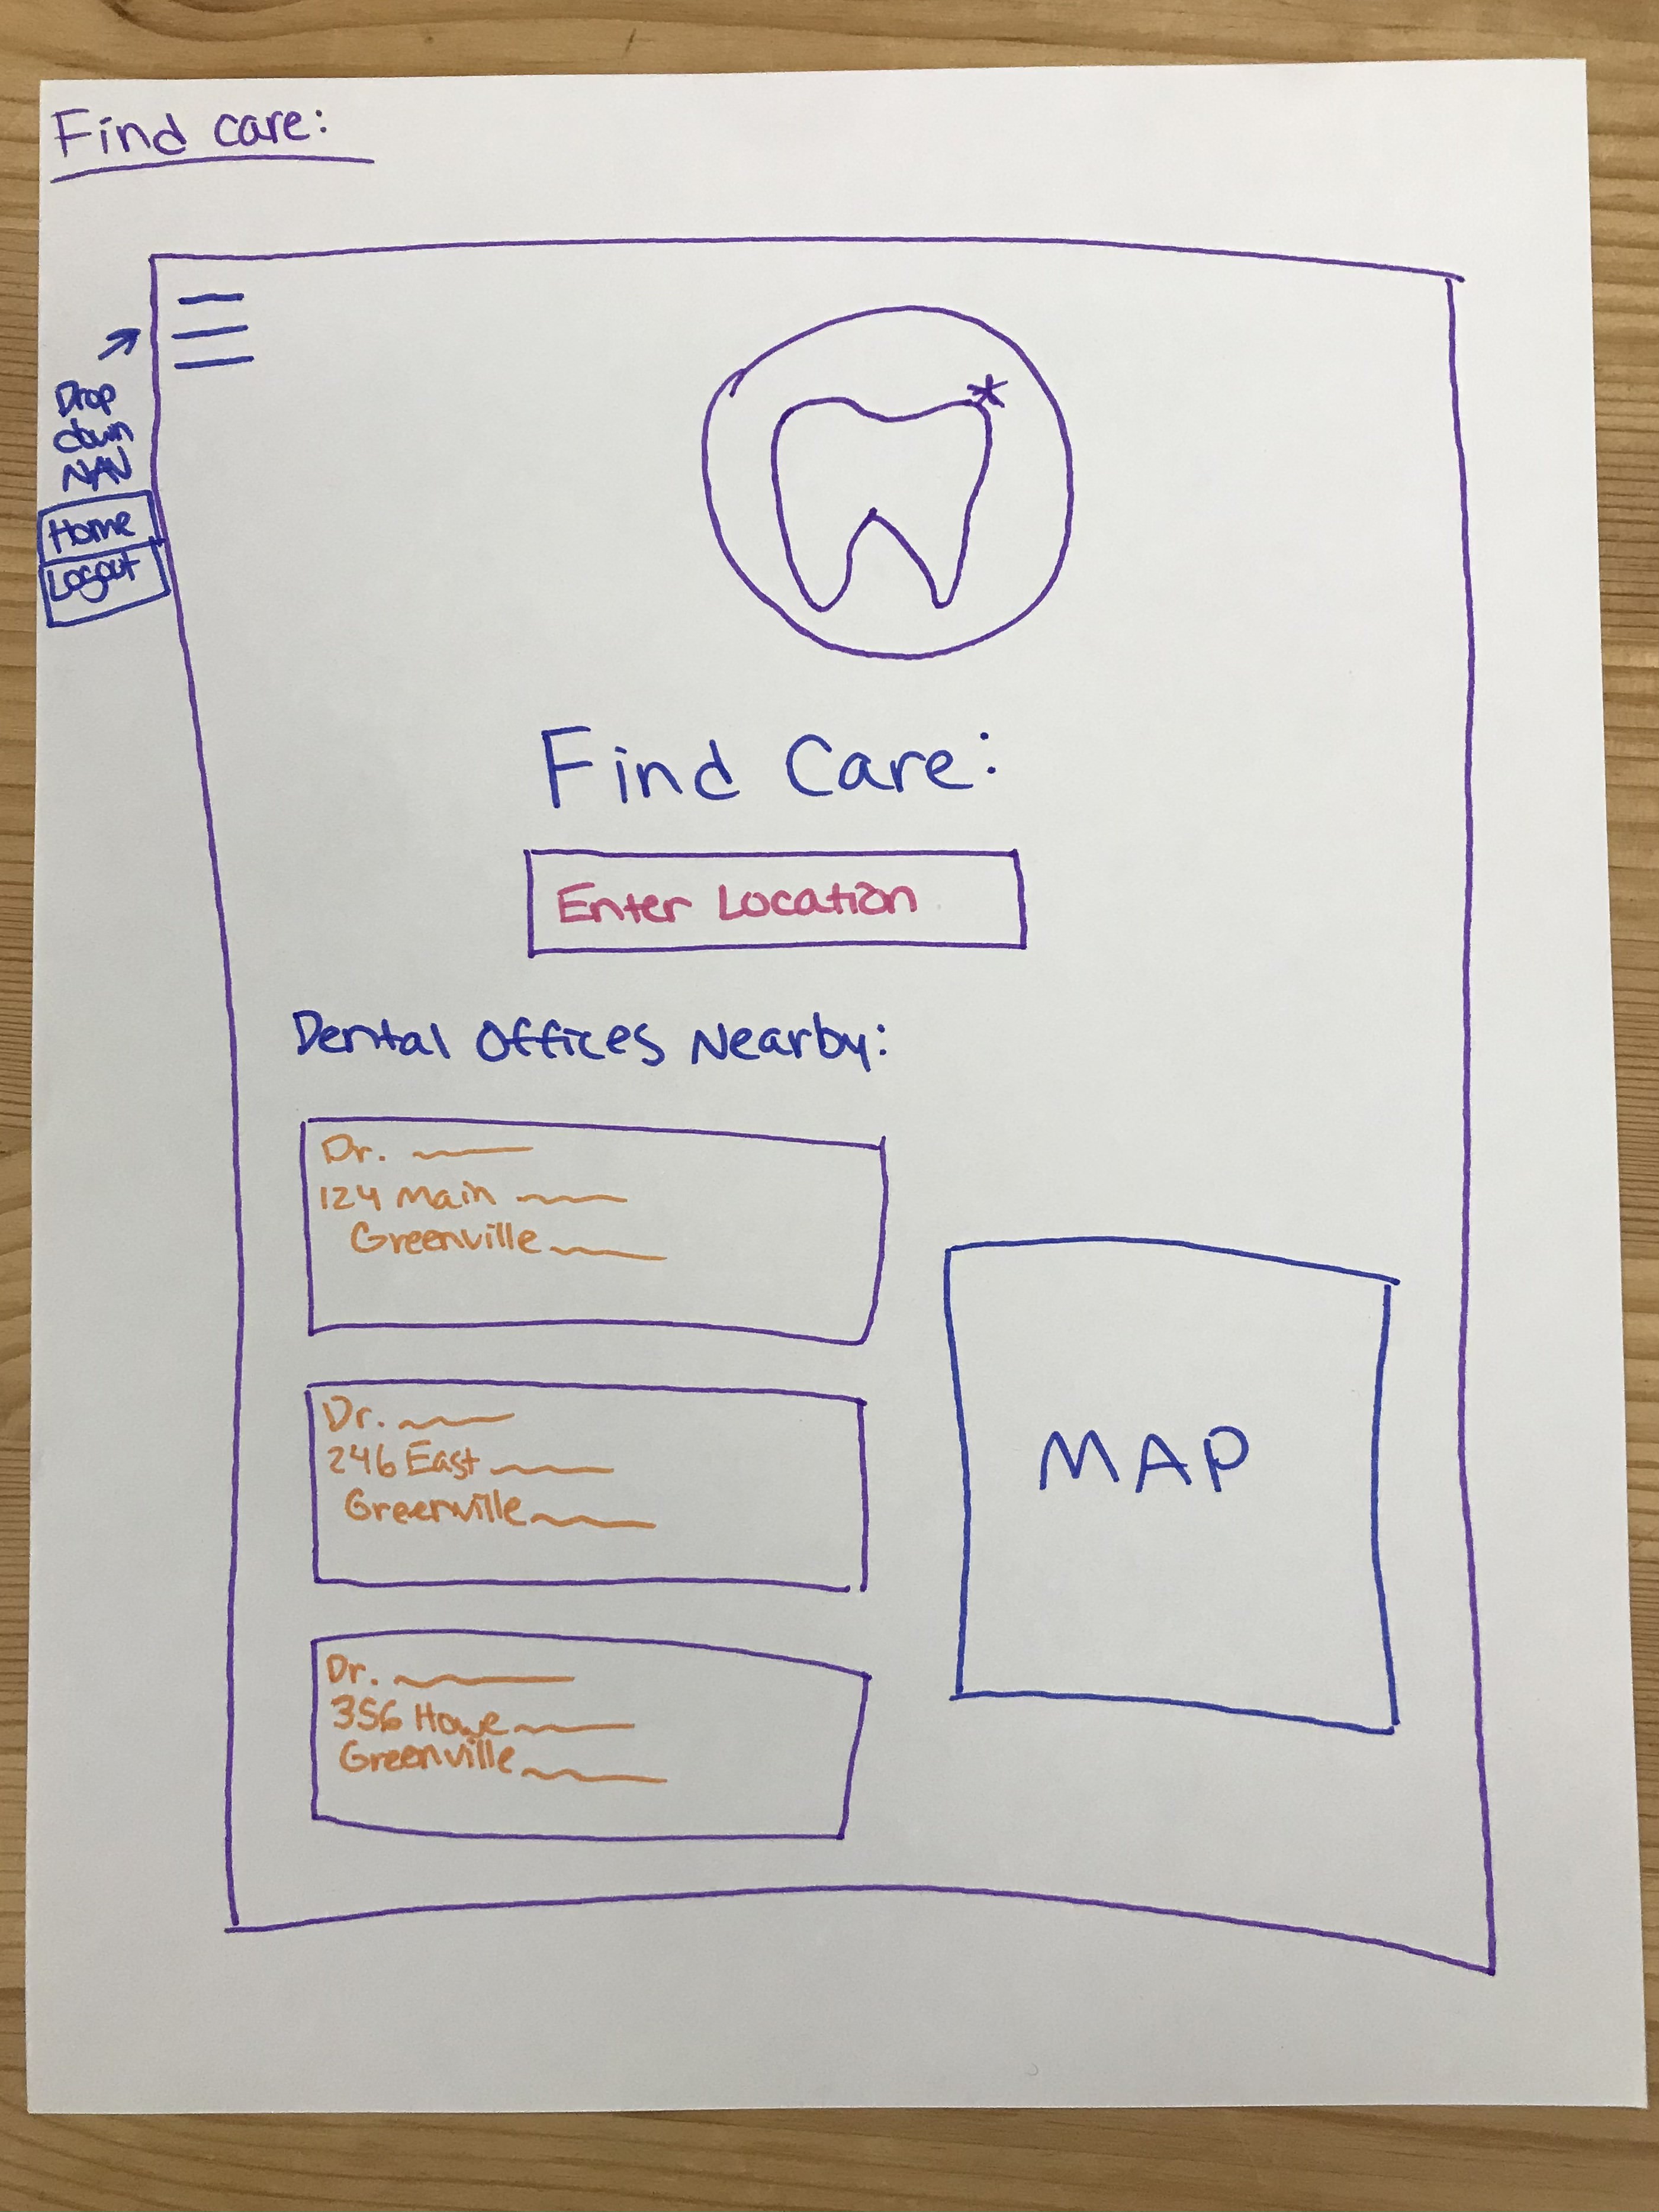 Find care:
Drop
down
NAV
Home
Logout
Find Care:
Enter Location
Dental Offices Nearby:
Dr.
124 Main
Greenville
Dr.
246 East
Greenville
Dr.
356 Howe
Greenville
MAP